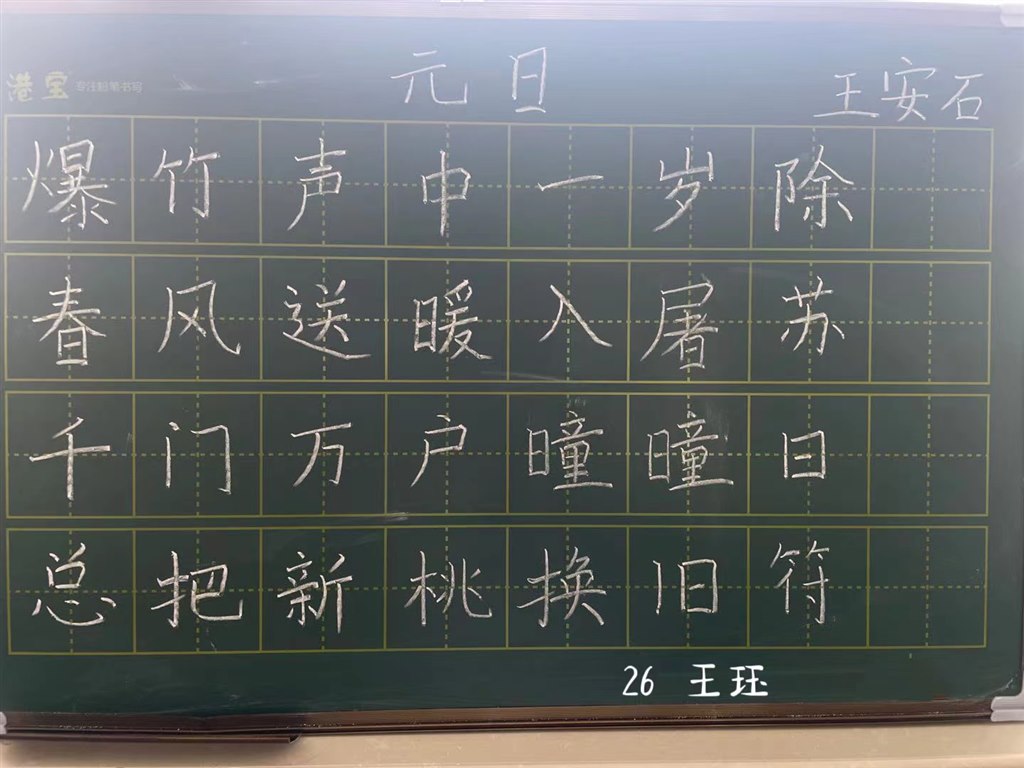 港宝 专注粉笔书写
元旦
王安石
爆竹声中一岁除
春风送暖入屠苏
千门万户曈曈日
总把新桃换旧符
26 王珏